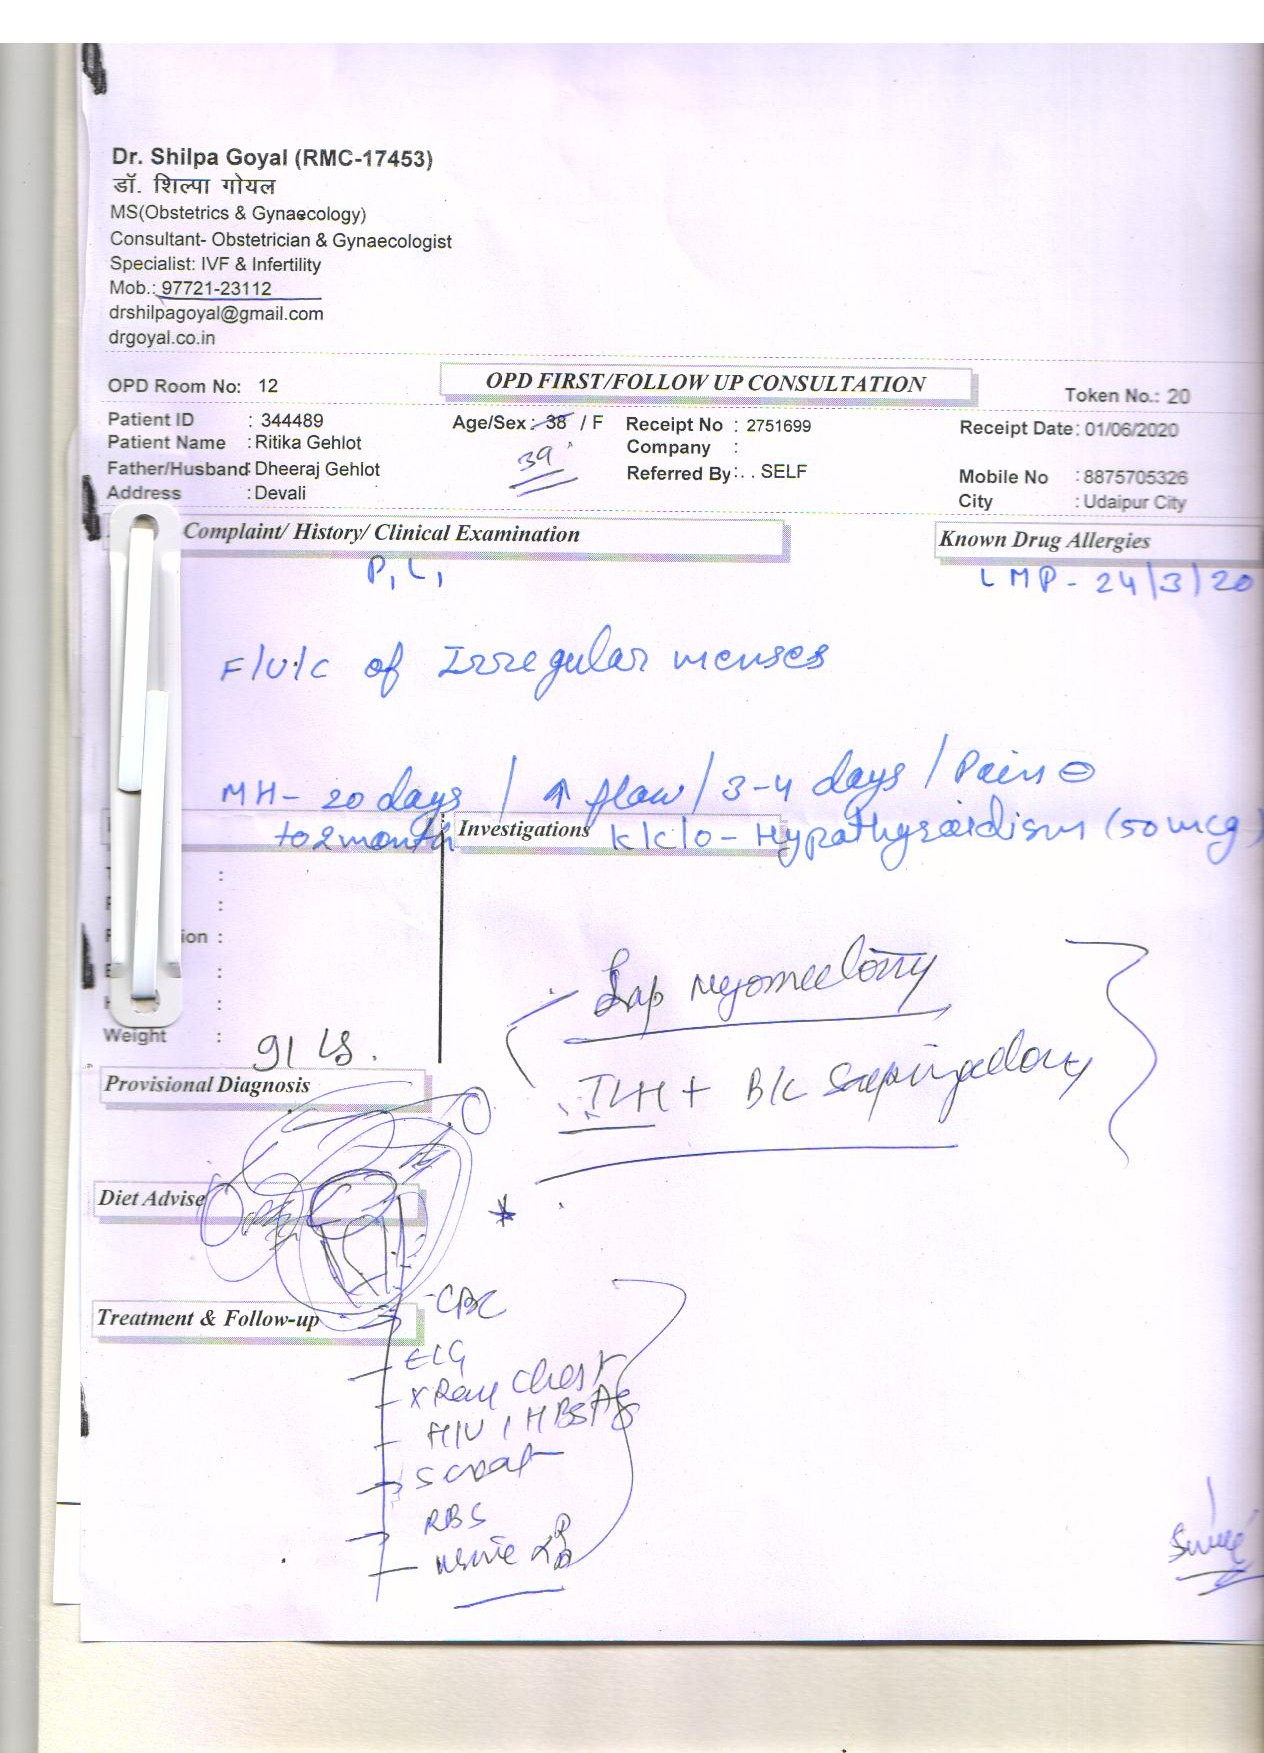 Dr. Shilpa Goyal (RMC-17453)
डॉ. शिल्पा गोयल
MS(Obstetrics & Gynaecology)
Consultant- Obstetrician & Gynaecologist
Specialist: IVF & Infertility
Mob.: 97721-23112
drshilpagoyal@gmail.com
drgoyal.co.in
OPD Room No: 12
OPD FIRST/FOLLOW UP CONSULTATION
Token No.: 20
Patient ID : 344489
Age/Sex : 38 / F
39
Receipt No : 2751699
Receipt Date : 01/06/2020
Patient Name : Ritika Gehlot
Company :
Father/Husband : Dheeraj Gehlot
Referred By : . . SELF
Mobile No : 8875705326
Address : Devali
City : Udaipur City
Complaint/ History/ Clinical Examination
Known Drug Allergies
P1 L1
LMP - 24/3/20
F/U/C of Irregular menses
MH - 20 days / ↑ flow / 3-4 days / Pain ⊖
to 2 month
Investigations
K/C/O - Hypothyroidism (50 mcg)
ion :
Weight :
91
Lap myomectomy
TLH + B/L Salpingectomy
Provisional Diagnosis
Diet Advise
Treatment & Follow-up
- CBC
ECG
X Ray Chest
HIV / HBsAg
S creat
RBS
urine